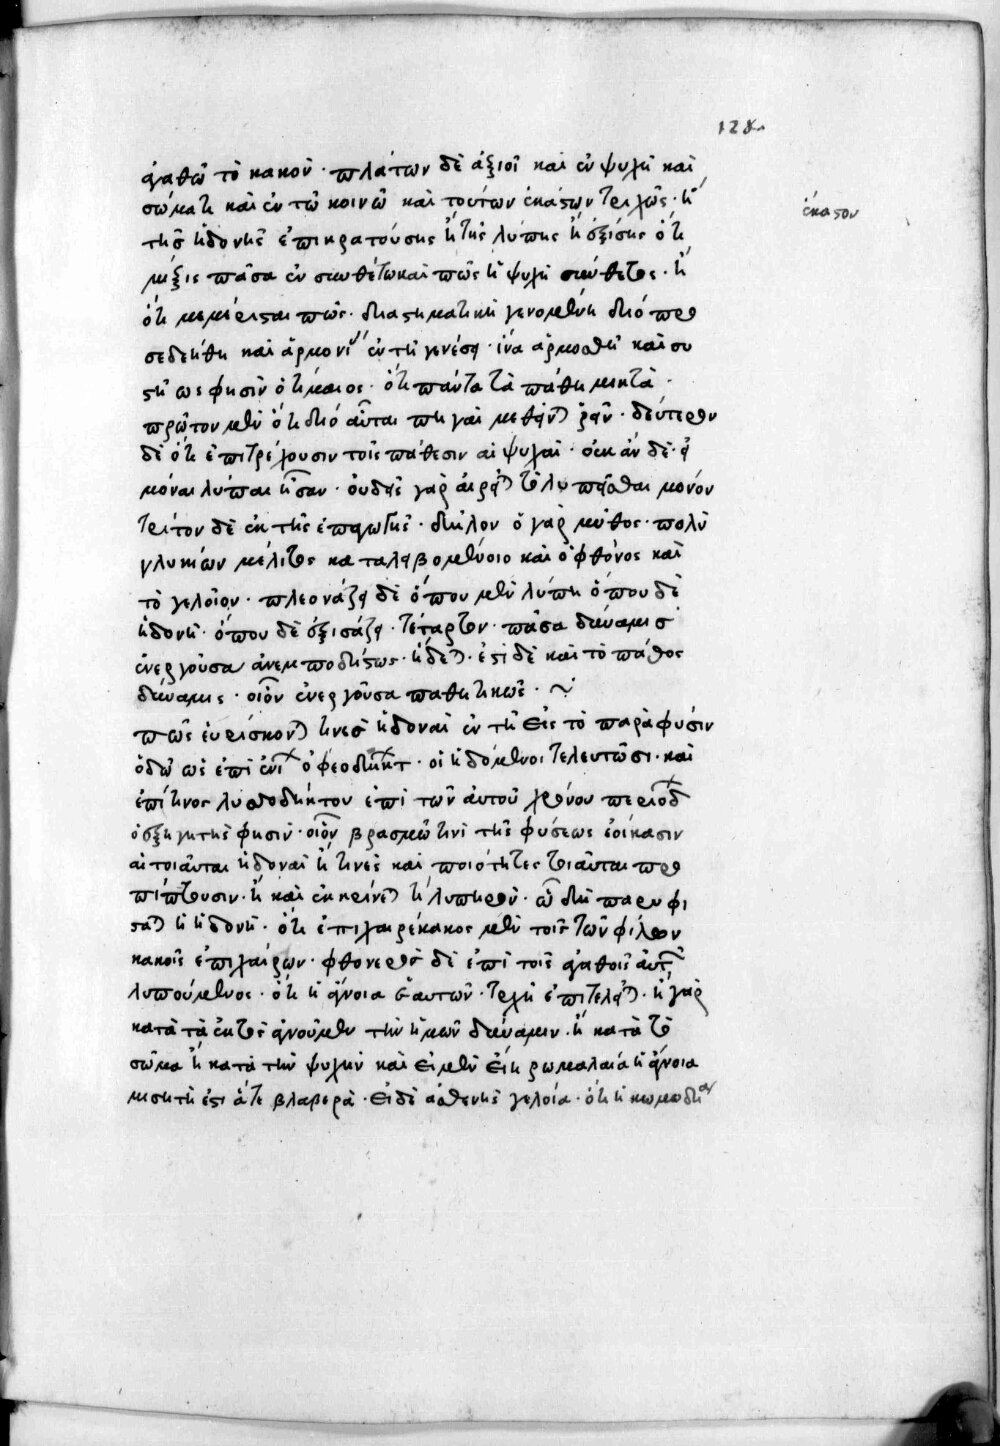 128
ἀγαθῶ τὸ κακόν · πλάτων δὲ ἀξιοῖ καὶ ἐν ψυχῇ καὶ
σώματι καὶ ἐν τῶ κοινῶ καὶ τούτων ἑκάστων τριχῶς · ἢ
ἕκαστον
τῆς ἡδονῆς ἐπικρατούσης ἢ τῆς λύπης ἢ ἐξίσης ὅτι
μίξις πᾶσα ἐν συνθέτω καὶ πῶς ἡ ψυχὴ σύνθετος · ἢ
ὅτι μεμέρισται πῶς · διαστηματικὴ γενομένη διό προ
σεδεήθη καὶ ἁρμονί ἐν τῇ γενέσει · ἵνα ἁρμοσθῇ καὶ συ
στῇ ὥς φησιν ὁ τίμαιος · ὅτι πάντα τὰ πάθη μικτὰ ·
πρῶτον μὲν ὅτι διό αὗται πηγαὶ μεθεῖνται ῥεῖν · δεύτερον
δὲ ὅτι ἐπιτρέχουσιν τοῖς πάθεσιν αἱ ψυχαὶ · οὐκ ἂν δὲ εἰ
μόναι λύπαι ἦσαν · οὐδεὶς γὰρ αἱρεῖται τὸ λυπεῖσθαι μόνον
τρίτον δὲ ἐκ τῆς ἐπαγωγῆς · δῆλον ὁ γὰρ μῦθος · πολὺ
γλυκίων μέλιτος καταλειβομένοιο καὶ ὁ φθόνος καὶ
τὸ γελοῖον · πλεονάζει δὲ ὅπου μὲν λύπη ὅπου δὲ
ἡδονή · ὅπου δὲ ἐξισάζει · τέταρτον · πᾶσα δύναμις
ἐνεργοῦσα ἀνεμποδίστως · ἥδεται · ἔστι δὲ καὶ τὸ πάθος
δύναμις · οἷον ἐνεργοῦσα παθητικῶς · ~
πῶς εὑρίσκονται τινὲς ἡδοναὶ ἐν τῇ εἰς τὸ παρὰ φύσιν
ὁδῶ ὡς ἐπὶ ἐνί ὀφεοδηκτ · οἱ ἡδόμενοι τελευτῶσι · καὶ
ἐπί τινος λυσσοδήκτου ἐπὶ τῶν αὐτοῦ χρόνου περιοδ
ὁ ἐξηγητής φησιν · οἷον βρασμῶ τινὶ τῆς φύσεως ἐοίκασιν
αἱ τοιαῦται ἡδοναὶ ἢ τινὲς καὶ ποιότητες τοιαῦται προ
πίπτουσιν · ἢ καὶ ἐκκρίνεται τι λυπηρόν · ὧ δὴ παρυφί
σταται ἡ ἡδονή · ὅτι ἐπιχαιρέκακος μὲν τοῖς τῶν φίλων
κακοῖς ἐπιχαίρων · φθονερὸς δὲ ἐπὶ τοῖς ἀγαθοῖς αὐτ
λυπούμενος · ὅτι ἡ ἄγνοια ἑαυτῶν · τριχῇ ἐπιτελεῖται · ἢ γὰρ
κατὰ τὰ ἐκτὸς ἀγνοοῦμεν τὴν ἡμῶν δύναμιν · ἢ κατὰ τὸ
σῶμα ἢ κατὰ τὴν ψυχὴν καὶ εἰ μὲν εἴη ῥωμαλαία ἡ ἄγνοια
μισητή ἐστι ἅτε βλαβερὰ · εἰ δὲ ἀσθενὴς γελοία · ὅτι ἡ κωμωδία